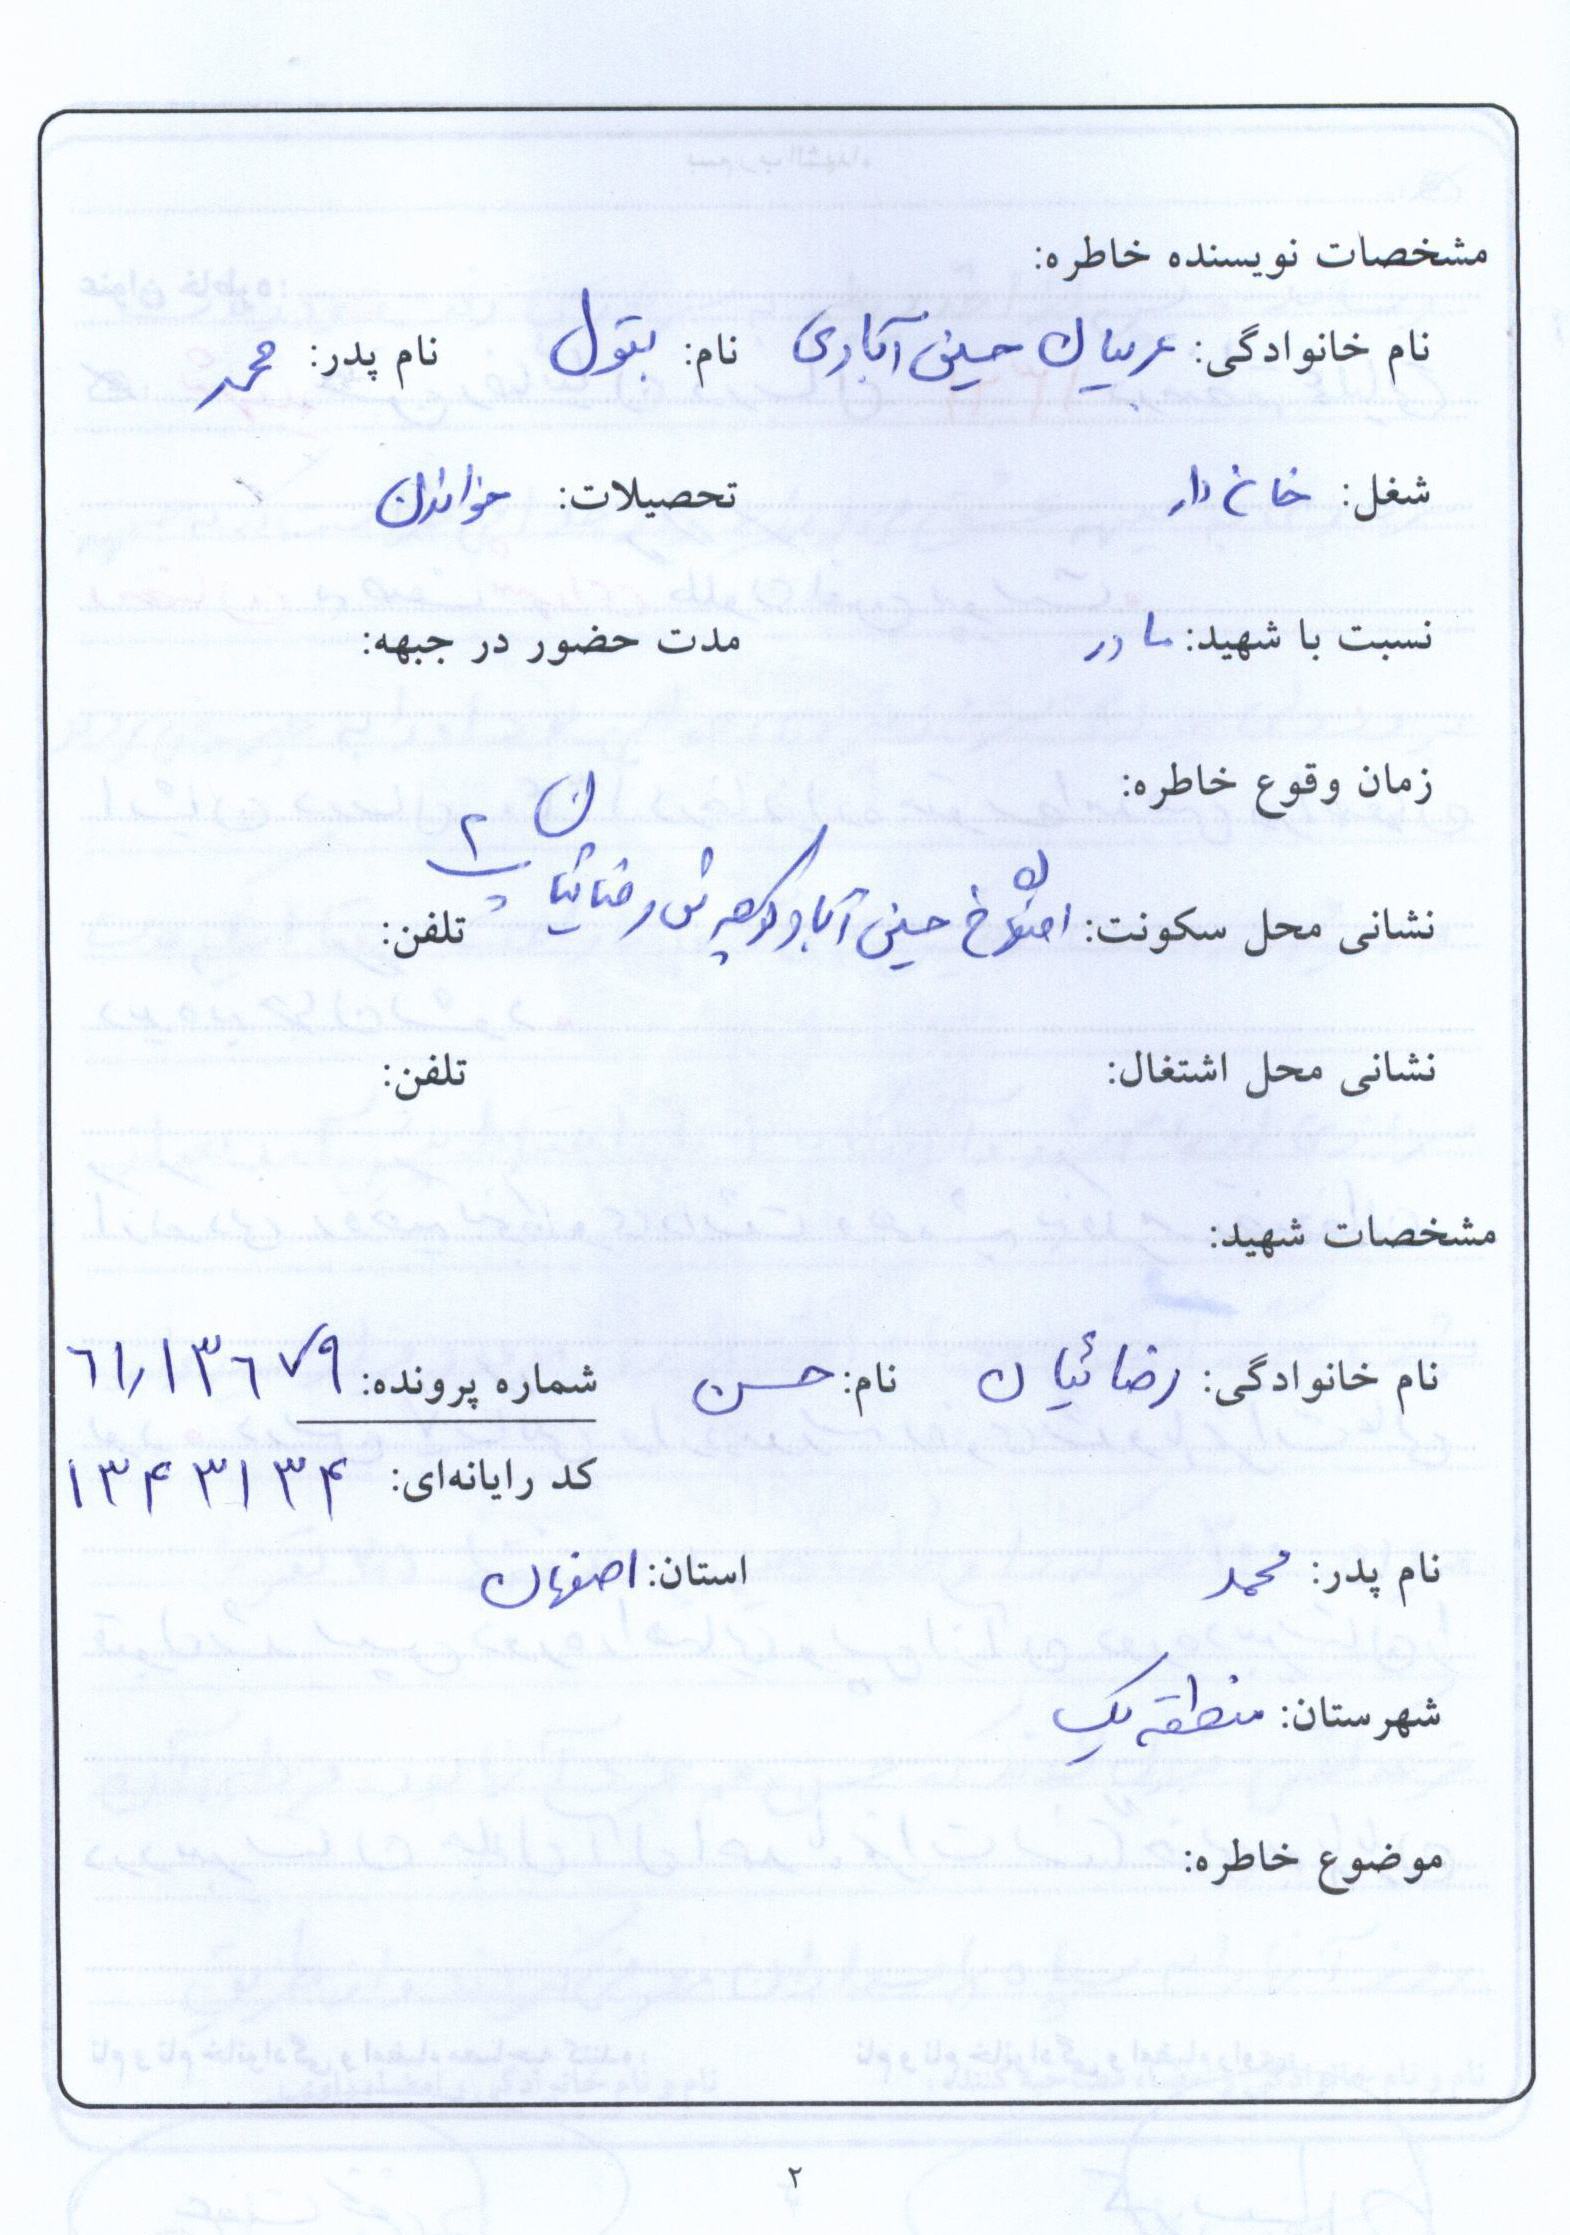 مشخصات نویسنده خاطره:
نام خانوادگی: عربیان حسینی آبادی نام: بتول نام پدر: محمد
شغل: خانه دار تحصیلات: خواندن
نسبت با شهید: مادر مدت حضور در جبهه:
زمان وقوع خاطره:
نشانی محل سکونت: اصفهان خ حسین آباد کوچه ش رضائیان پ ۲ تلفن:
نشانی محل اشتغال: تلفن:
مشخصات شهید:
نام خانوادگی: رضائیان نام: حسن شماره پرونده: ٦١،١٣٦٧٩
کد رایانه‌ای: ۱۳۴۳۱۳۴
نام پدر: محمد استان: اصفهان
شهرستان: منطقه یک
موضوع خاطره:
۲